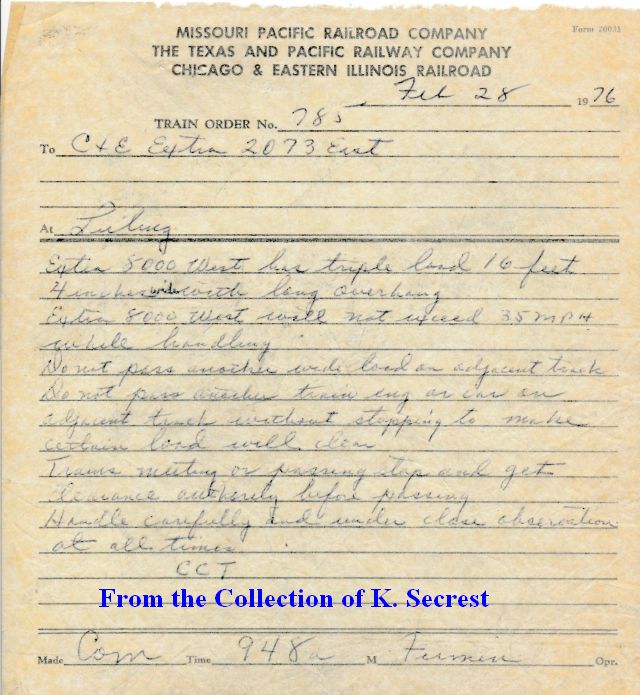 Form 20033
MISSOURI PACIFIC RAILROAD COMPANY
THE TEXAS AND PACIFIC RAILWAY COMPANY
CHICAGO & EASTERN ILLINOIS RAILROAD
Feb 28 1976
TRAIN ORDER No. 785
To C&E Extra 2073 East
At Luling
Extra 8000 West has triple load 16 feet
4 inches wide with long overhang
Extra 8000 West will not exceed 35 MPH
while handling
Do not pass another wide load on adjacent track
Do not pass another train eng or car on
adjacent track without stopping to make
certain load will clear
Trains meeting or passing stop and get
clearance authority before passing
Handle carefully and under close observation
at all times
CCT
From the Collection of K. Secrest
Made Com Time 948a M Opr.